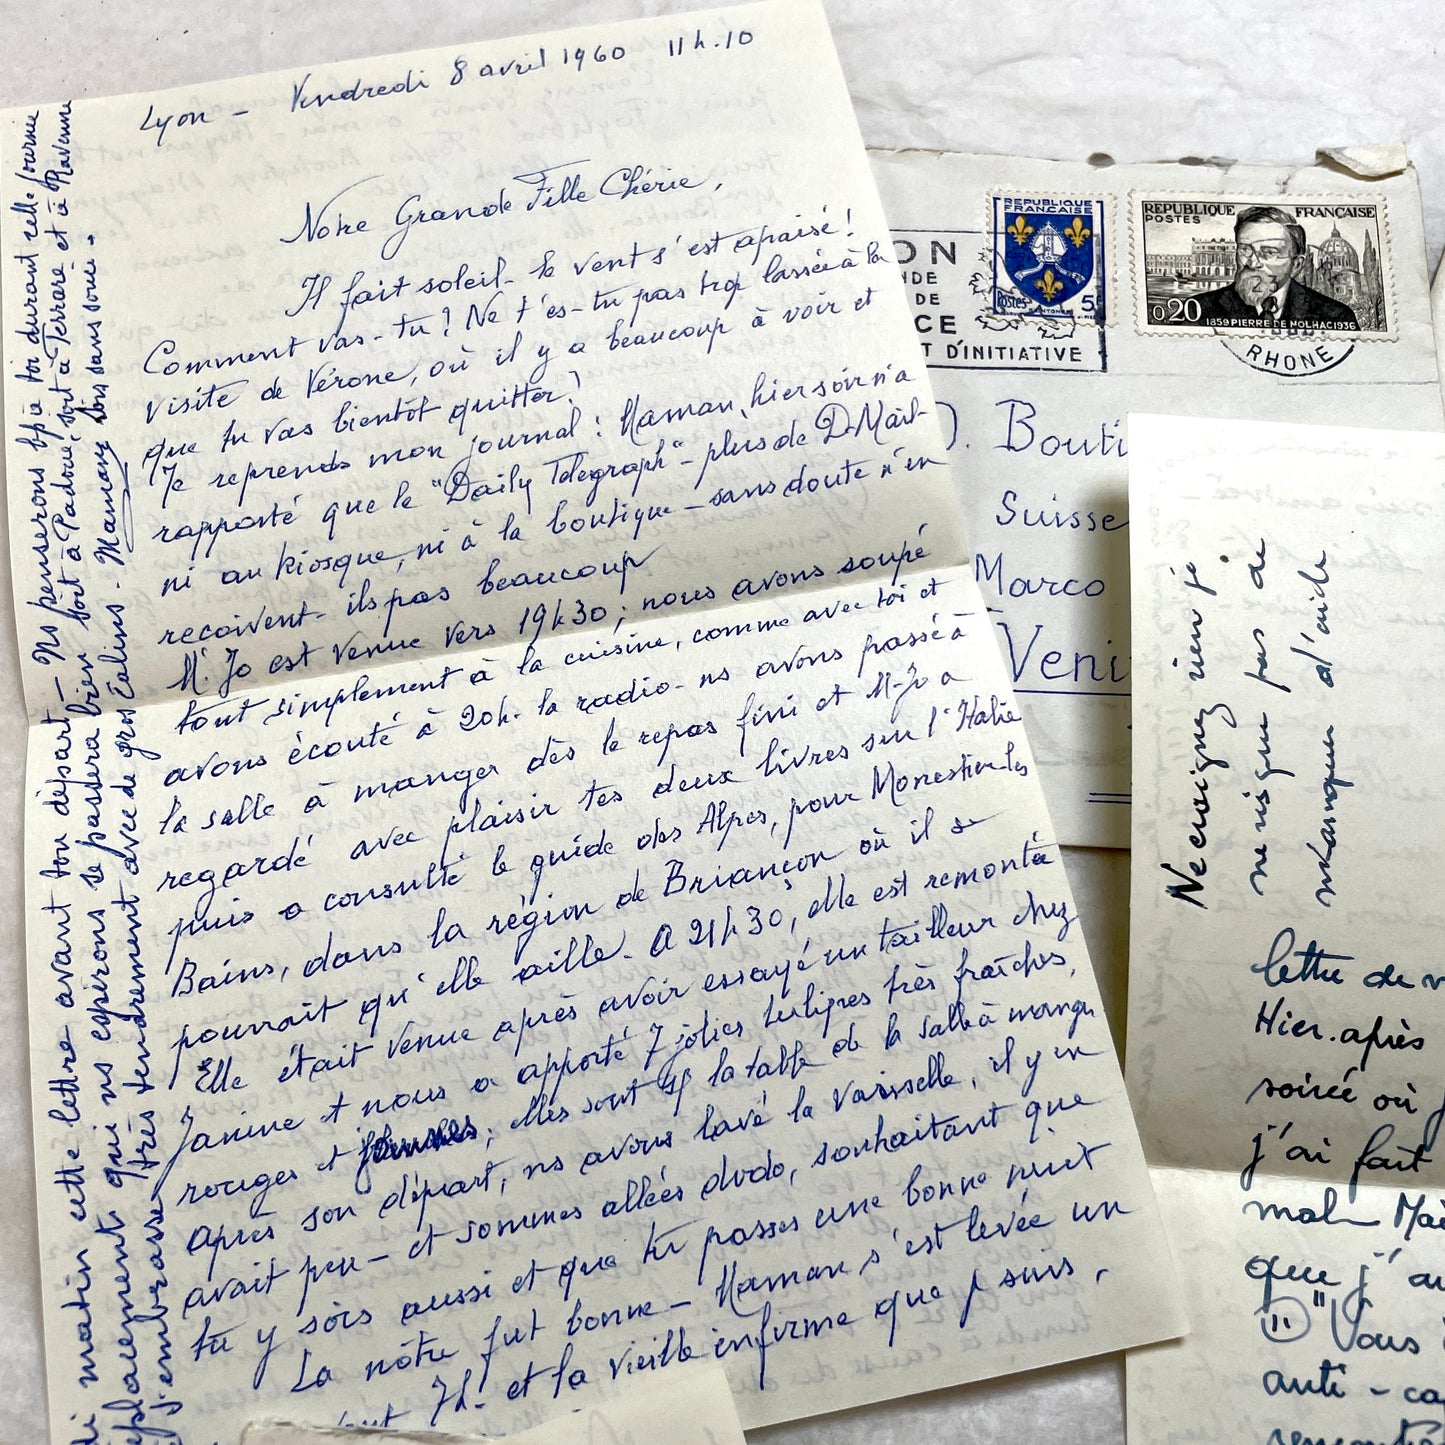 Lyon - Vendredi 8 avril 1960 11h.10
Notre Grande Fille Chérie,
Il fait soleil - le vent s'est apaisé!
Comment vas-tu? Ne t'es-tu pas trop lassée à la
visite de Vérone, où il y a beaucoup à voir et
que tu vas bientôt quitter?
Je reprends mon journal: Maman, hier soir n'a
rapporté que le "Daily Telegraph" - plus de D-Mail-
ni au kiosque, ni à la boutique - sans doute n'en
reçoivent-ils pas beaucoup
M. Jo est venue vers 19h30; nous avons soupé
tout simplement à la cuisine, comme avec toi et
avons écouté à 20h. la radio - ns avons passé à
la salle à manger dès le repas fini et M-Jo a
regardé avec plaisir tes deux livres sur l'Italie
puis a consulté le guide des Alpes, pour Monestier-les
Bains, dans la région de Briançon où il se
pourrait qu'elle aille. A 21h30, elle est remontée
Elle était venue après avoir essayé un tailleur chez
Janine et nous a apporté 7 jolies tulipes très fraîches,
rouges et jaunes; elles sont sr la table de la salle à manger
après son départ, ns avons lavé la vaisselle, il y en
avait peu - et sommes allées dodo, souhaitant que
tu y sois aussi et que tu passes une bonne nuit
La nôtre fut bonne - Maman s'est levée un
7h. et la vieille infirme que je suis,
di matin cette lettre avant ton départ - Ns penserons bp à toi durant cette journée
déplacements qui ns espérons se passera bien soit à Padoue soit à Ferrare et à Ravenne
J'embrasse très tendrement avec de gros câlins. Mamany sans souci -
RÉPUBLIQUE
FRANÇAISE
Postes
5F
RÉPUBLIQUE FRANÇAISE
POSTES
0,20
1859 PIERRE DE NOLHAC 1936
ON
NDE
DE
CE
T D'INITIATIVE
23
RHONE
D. Bouti
Suisse
Marco
Veni
Ne craignez rien je
ne risque pas de
manquer d'aide
lettre de
Hier après
soirée où
j'ai fait
mal Mai
que j'
"Vous
anti-ca